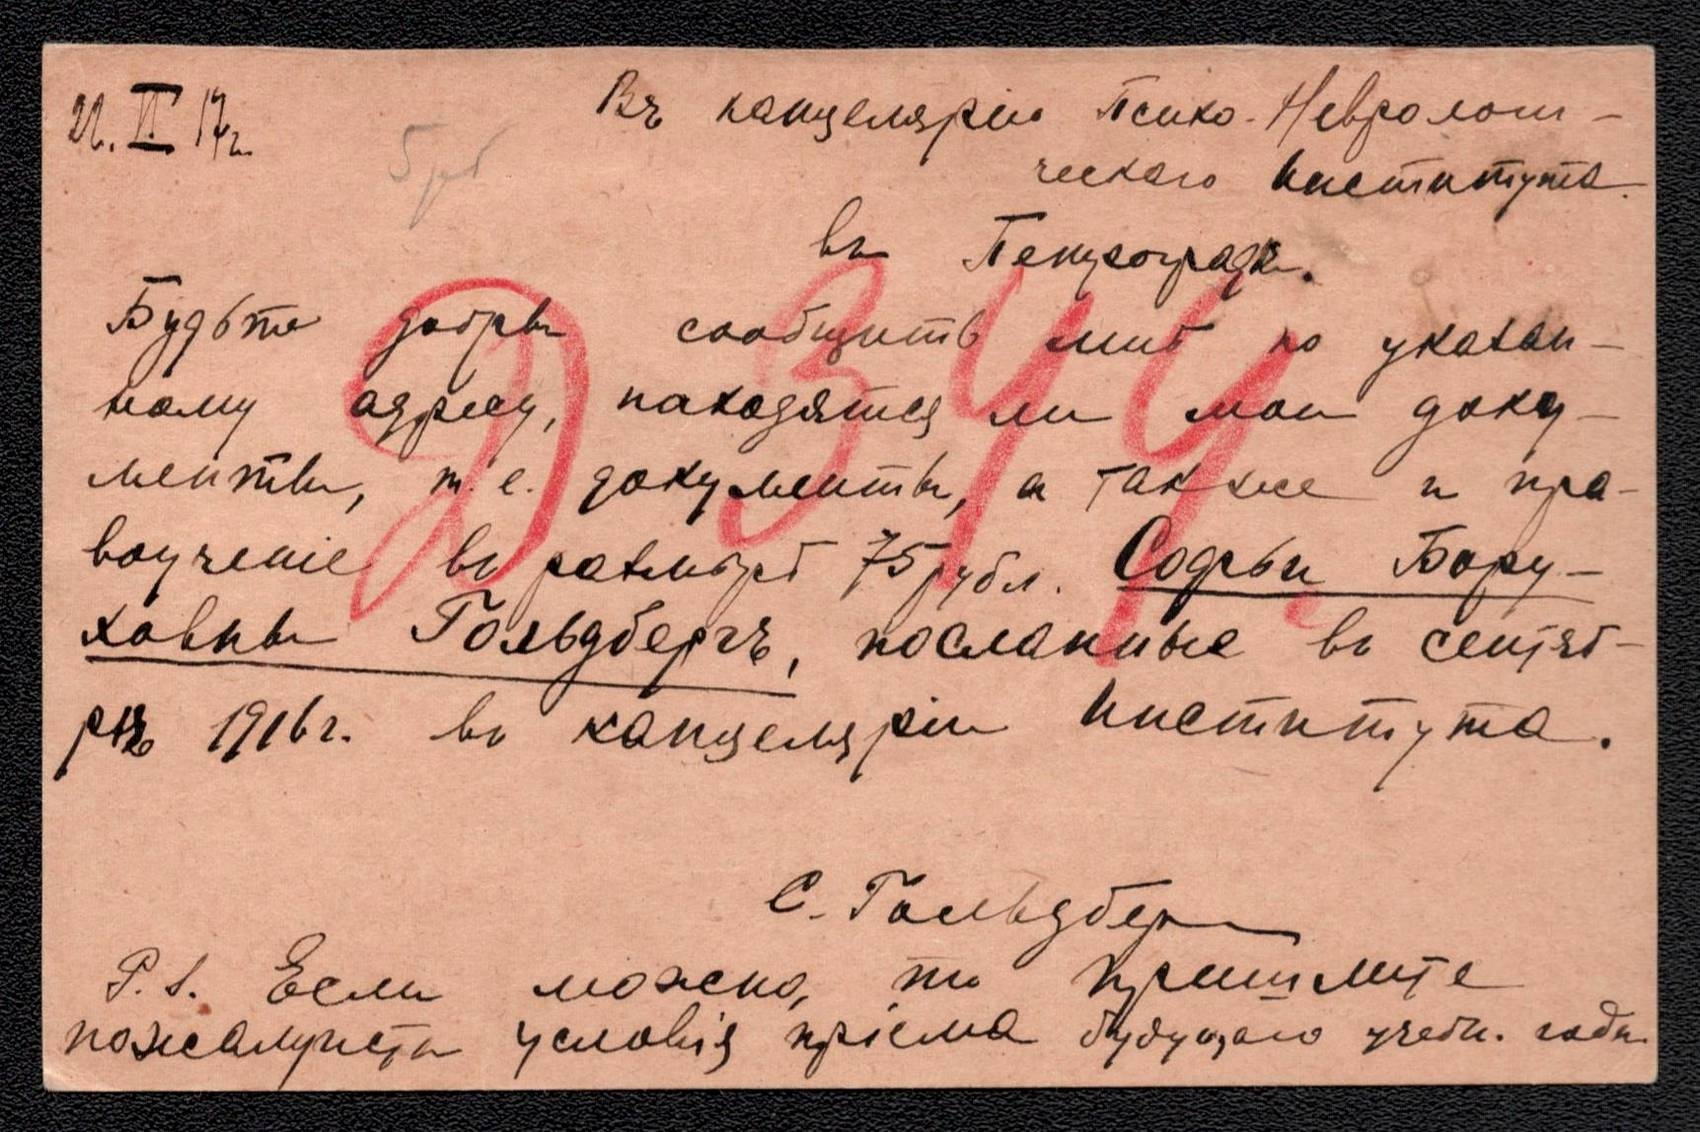 22. II 17г.
5 рб
Въ канцелярію Психо-Неврологи-
ческаго Института.
въ Петроградѣ.
Будьте добры сообщить мнѣ по указан-
ному адресу, находятся ли мои доку-
менты, т. е. документы, а также и пра-
воученіе въ размѣрѣ 75 рубл. Софьи Бору-
ховны Гольдбергъ, посланные въ сентяб-
рѣ 1916 г. въ канцелярiи Института.
С. Гольдберг
P.S. Если можно, то пришлите
пожалуйста условія пріема будущаго учебн. года.